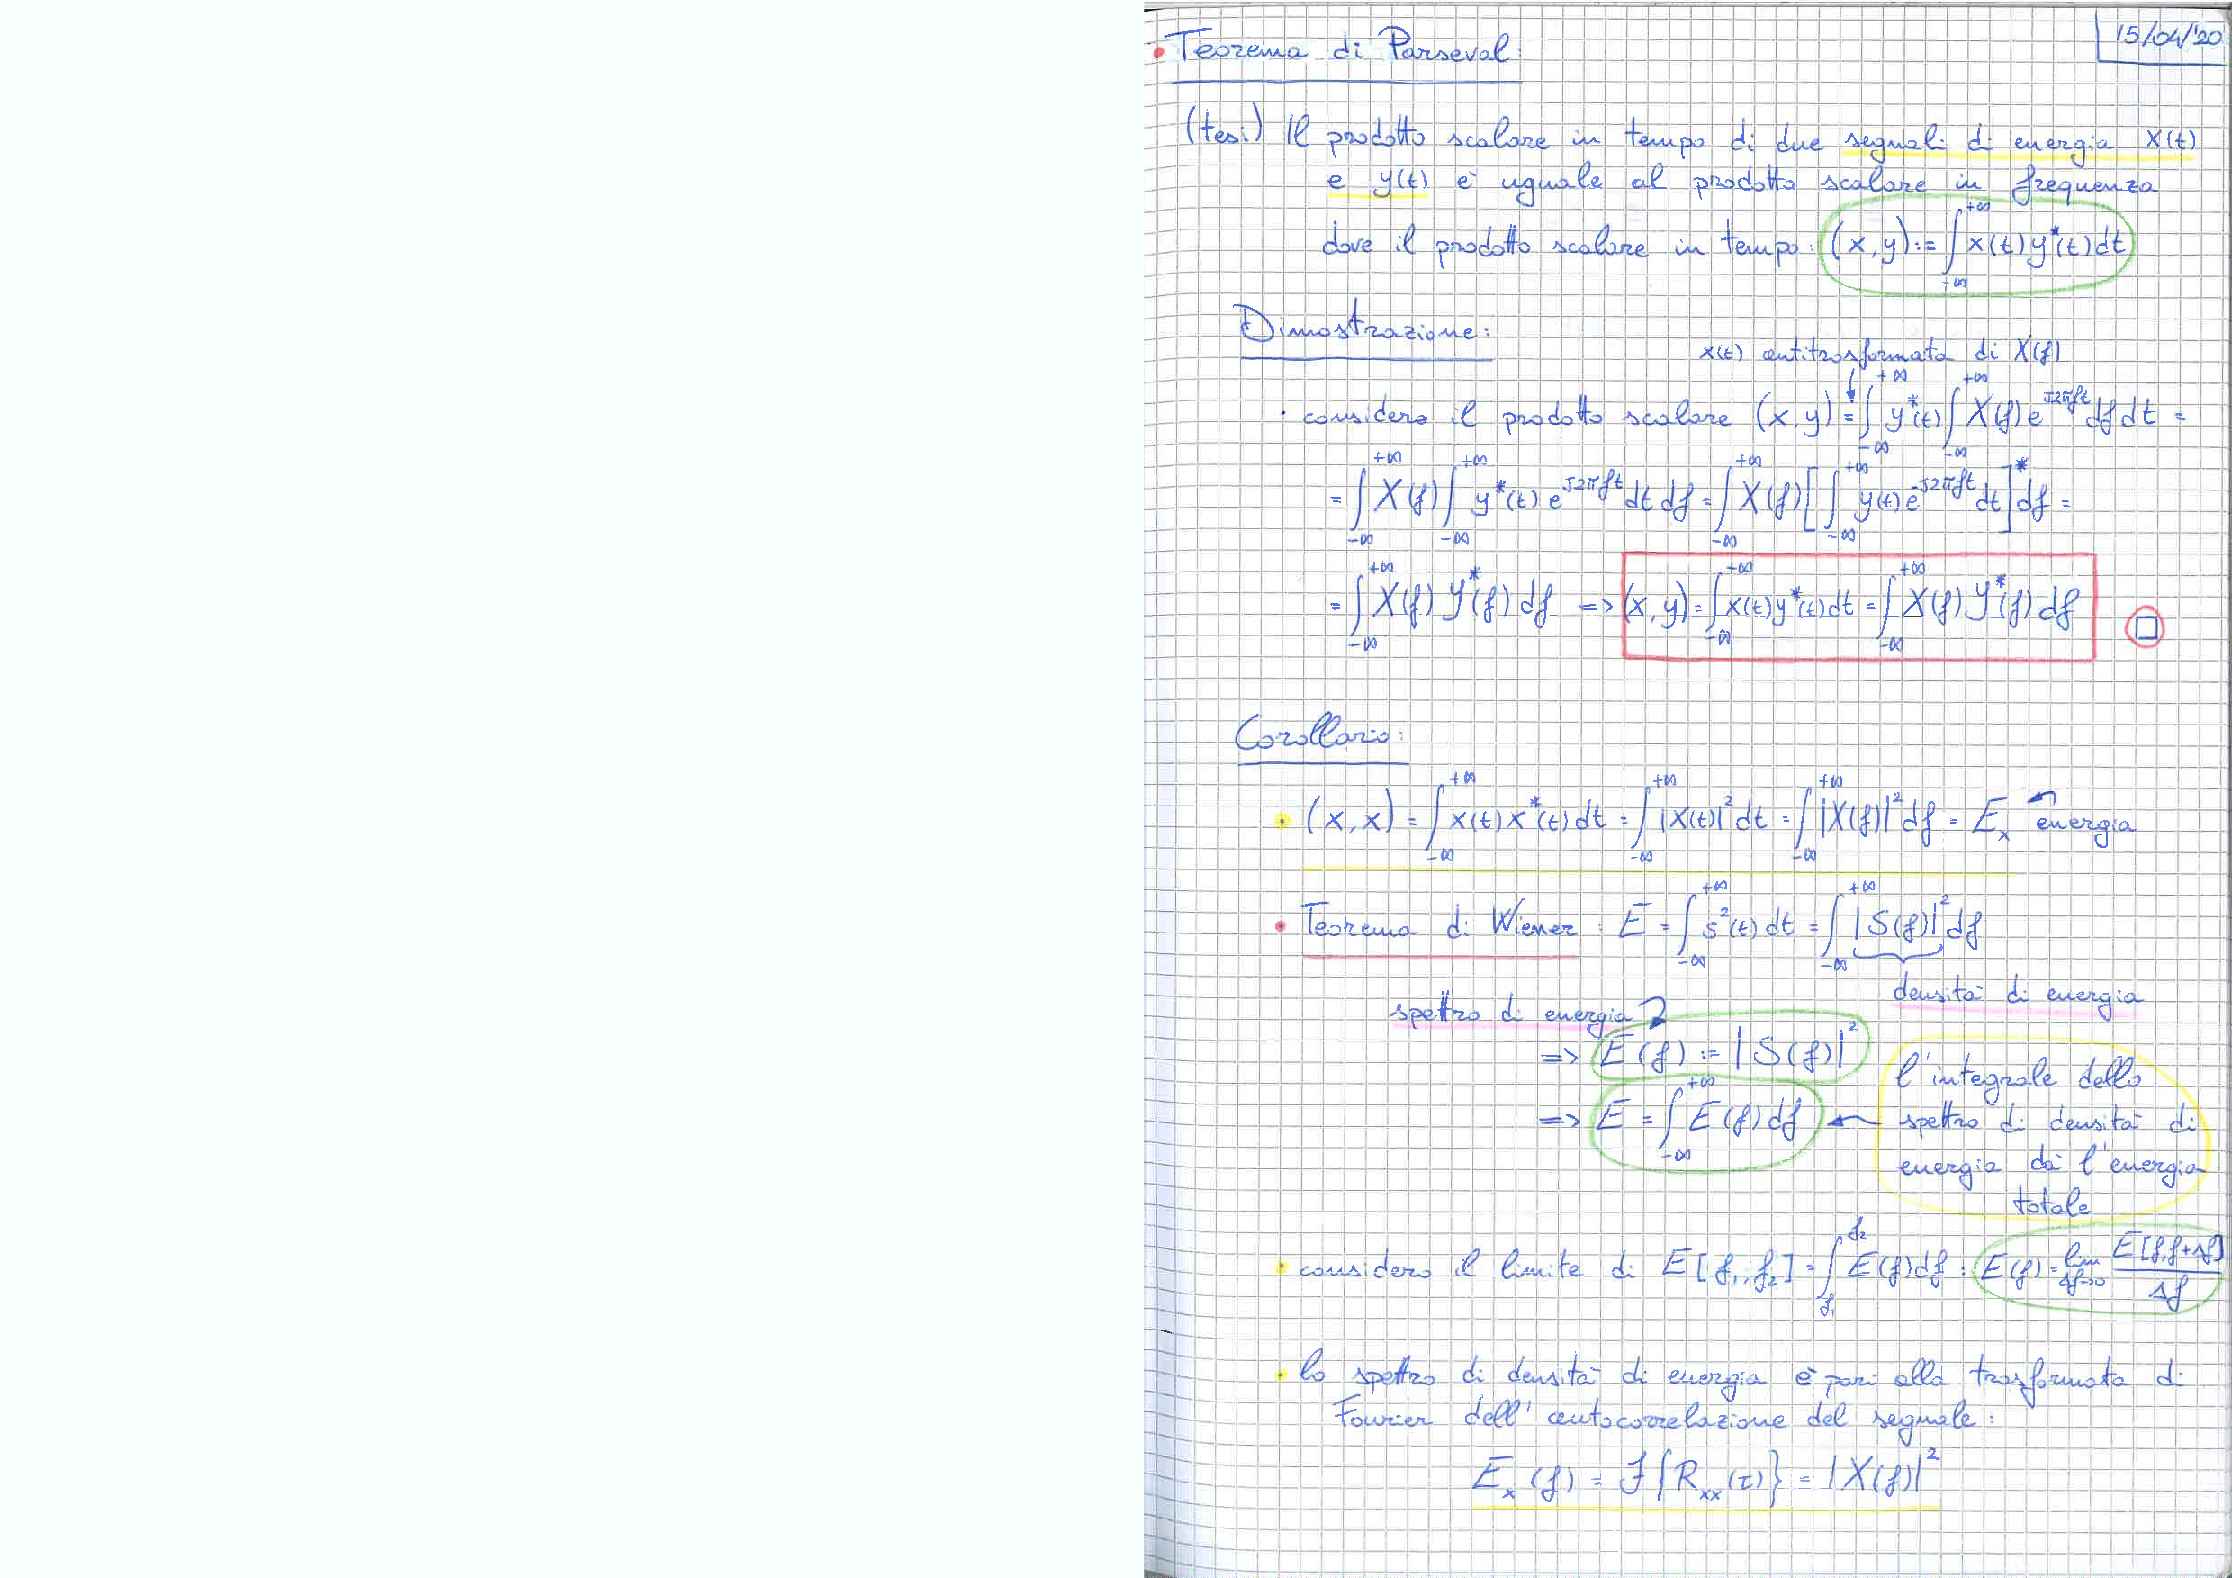 15/04/'20
• Teorema di Parseval:
(tesi) Il prodotto scalare in tempo di due segnali di energia x(t)
e y(t) è uguale al prodotto scalare in frequenza
dove il prodotto scalare in tempo: (x,y):=∫_{-∞}^{+∞} x(t)y*(t)dt
Dimostrazione:
x(t) antitrasformata di X(f)
· considero il prodotto scalare (x,y) = ∫_{-∞}^{+∞} y*(t) ∫_{-∞}^{+∞} X(f) e^{j2πft} df dt =
= ∫_{-∞}^{+∞} X(f) ∫_{-∞}^{+∞} y*(t) e^{j2πft} dt df = ∫_{-∞}^{+∞} X(f) [∫_{-∞}^{+∞} y(t) e^{-j2πft} dt]* df =
= ∫_{-∞}^{+∞} X(f) Y*(f) df => (x,y) = ∫_{-∞}^{+∞} x(t)y*(t)dt = ∫_{-∞}^{+∞} X(f) Y*(f) df □
Corollario:
• (x,x) = ∫_{-∞}^{+∞} x(t)x*(t)dt = ∫_{-∞}^{+∞} |x(t)|² dt = ∫_{-∞}^{+∞} |X(f)|² df = E_x energia
• Teorema di Wiener: E = ∫_{-∞}^{+∞} s²(t)dt = ∫_{-∞}^{+∞} |S(f)|² df
densità di energia
spettro di energia
=> E(f) := |S(f)|²
=> E = ∫_{-∞}^{+∞} E(f)df ←
l'integrale dello
spettro di densità di
energia dà l'energia
totale
• considero il limite di E[f₁,f₂] = ∫_{f₁}^{f₂} E(f)df : E(f) = lim_{Δf→0} E[f,f+Δf]/Δf
• lo spettro di densità di energia è pari alla trasformata di
Fourier dell'autocorrelazione del segnale:
E_x(f) = F{R_xx(τ)} = |X(f)|²